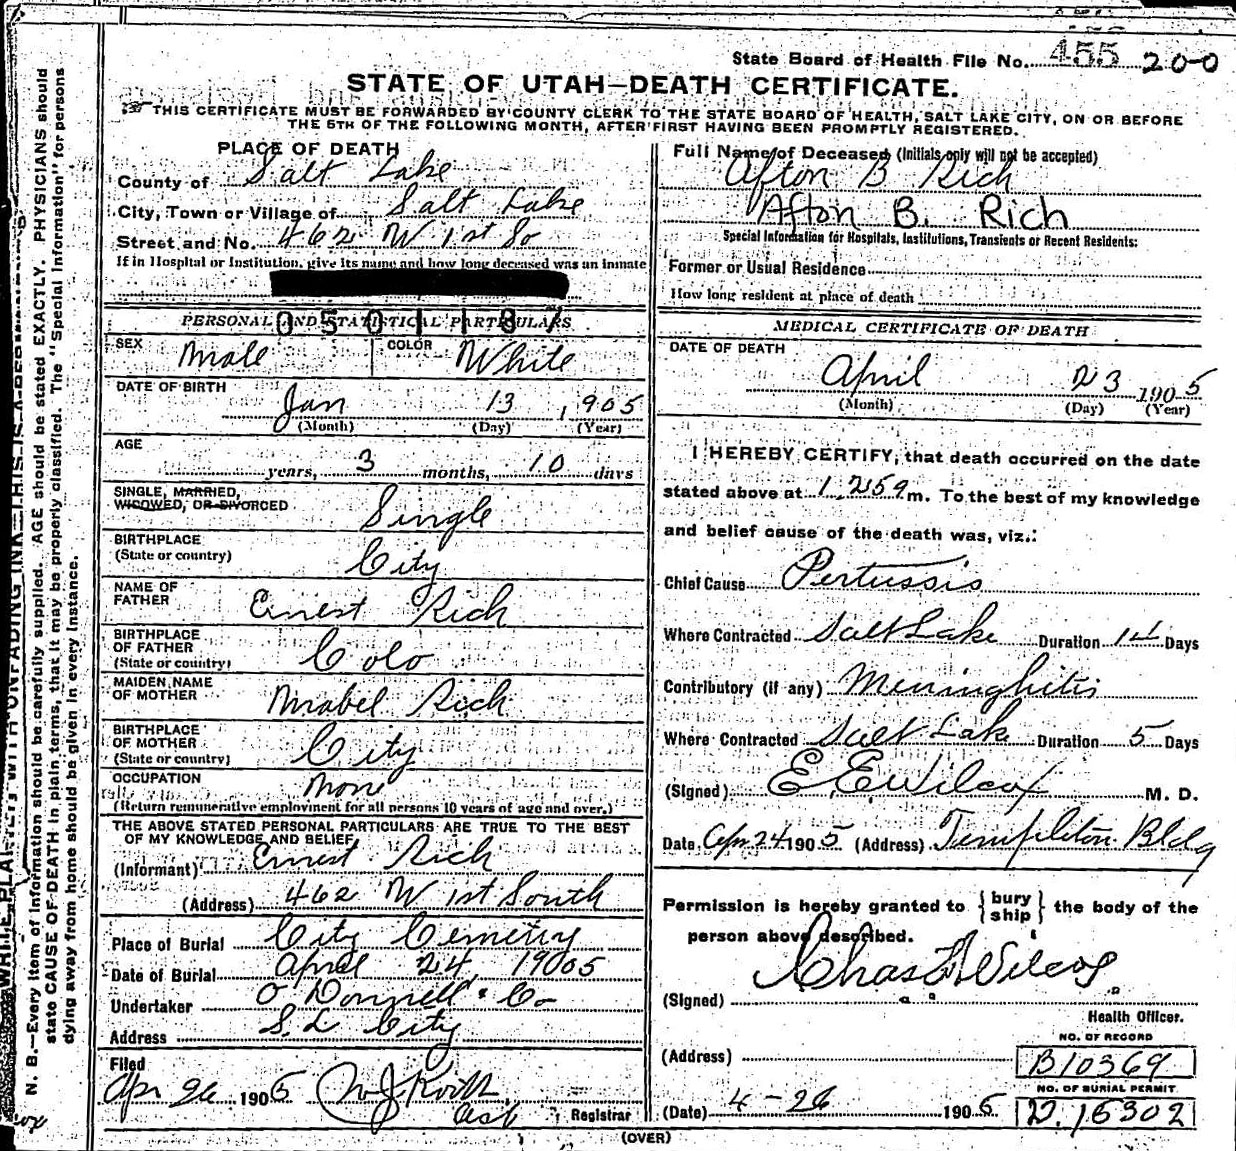 State Board of Health File No. 455 200
STATE OF UTAH—DEATH CERTIFICATE.
THIS CERTIFICATE MUST BE FORWARDED BY COUNTY CLERK TO THE STATE BOARD OF HEALTH, SALT LAKE CITY, ON OR BEFORE
THE 5TH OF THE FOLLOWING MONTH, AFTER FIRST HAVING BEEN PROMPTLY REGISTERED.
PLACE OF DEATH
County of Salt Lake
City, Town or Village of Salt Lake
Street and No. 462 W 1st So
If in Hospital or Institution, give its name and how long deceased was an inmate
PERSONAL AND STATISTICAL PARTICULARS
050118
SEX Male COLOR White
DATE OF BIRTH
Jan 13, 1905
(Month) (Day) (Year)
AGE
years, 3 months, 10 days
SINGLE, MARRIED,
WIDOWED, OR DIVORCED Single
BIRTHPLACE
(State or country) City
NAME OF
FATHER Ernest Rich
BIRTHPLACE
OF FATHER
(State or country) Colo
MAIDEN NAME
OF MOTHER Mabel Rich
BIRTHPLACE
OF MOTHER
(State or country) City
OCCUPATION None
(Return remunerative employment for all persons 10 years of age and over.)
THE ABOVE STATED PERSONAL PARTICULARS ARE TRUE TO THE BEST
OF MY KNOWLEDGE AND BELIEF
(Informant) Ernest Rich
(Address) 462 W 1st South
Place of Burial City Cemetry
Date of Burial April 24, 1905
Undertaker O Donnell & Co
Address S. L City
Filed
Apr 26 1905
Registrar
Full Name of Deceased (Initials only will not be accepted)
Afton B Rich
Afton B. Rich
Special Information for Hospitals, Institutions, Transients or Recent Residents:
Former or Usual Residence
How long resident at place of death
MEDICAL CERTIFICATE OF DEATH
DATE OF DEATH
April 23 1905
(Month) (Day) (Year)
I HEREBY CERTIFY, that death occurred on the date
stated above at 1.25 a m. To the best of my knowledge
and belief cause of the death was, viz.:
Chief Cause Pertussis
Where Contracted Salt Lake Duration 14 Days
Contributory (if any) Meninghitis
Where Contracted Salt Lake Duration 5 Days
(Signed) E E Wilcox M. D.
Date Apr 24 1905 (Address) Templeton Bldg
Permission is hereby granted to {bury ship} the body of the
person above described.
(Signed) Chas F Wilcox
Health Officer.
(Address)
NO. OF RECORD
B10369
NO. OF BURIAL PERMIT
(Date) 4-26 1905 D.15302
(OVER)
N. B.—Every item of information should be carefully supplied. AGE should be stated EXACTLY. PHYSICIANS should
state CAUSE OF DEATH in plain terms, that it may be properly classified. The "Special Information" for persons
dying away from home should be given in every instance.